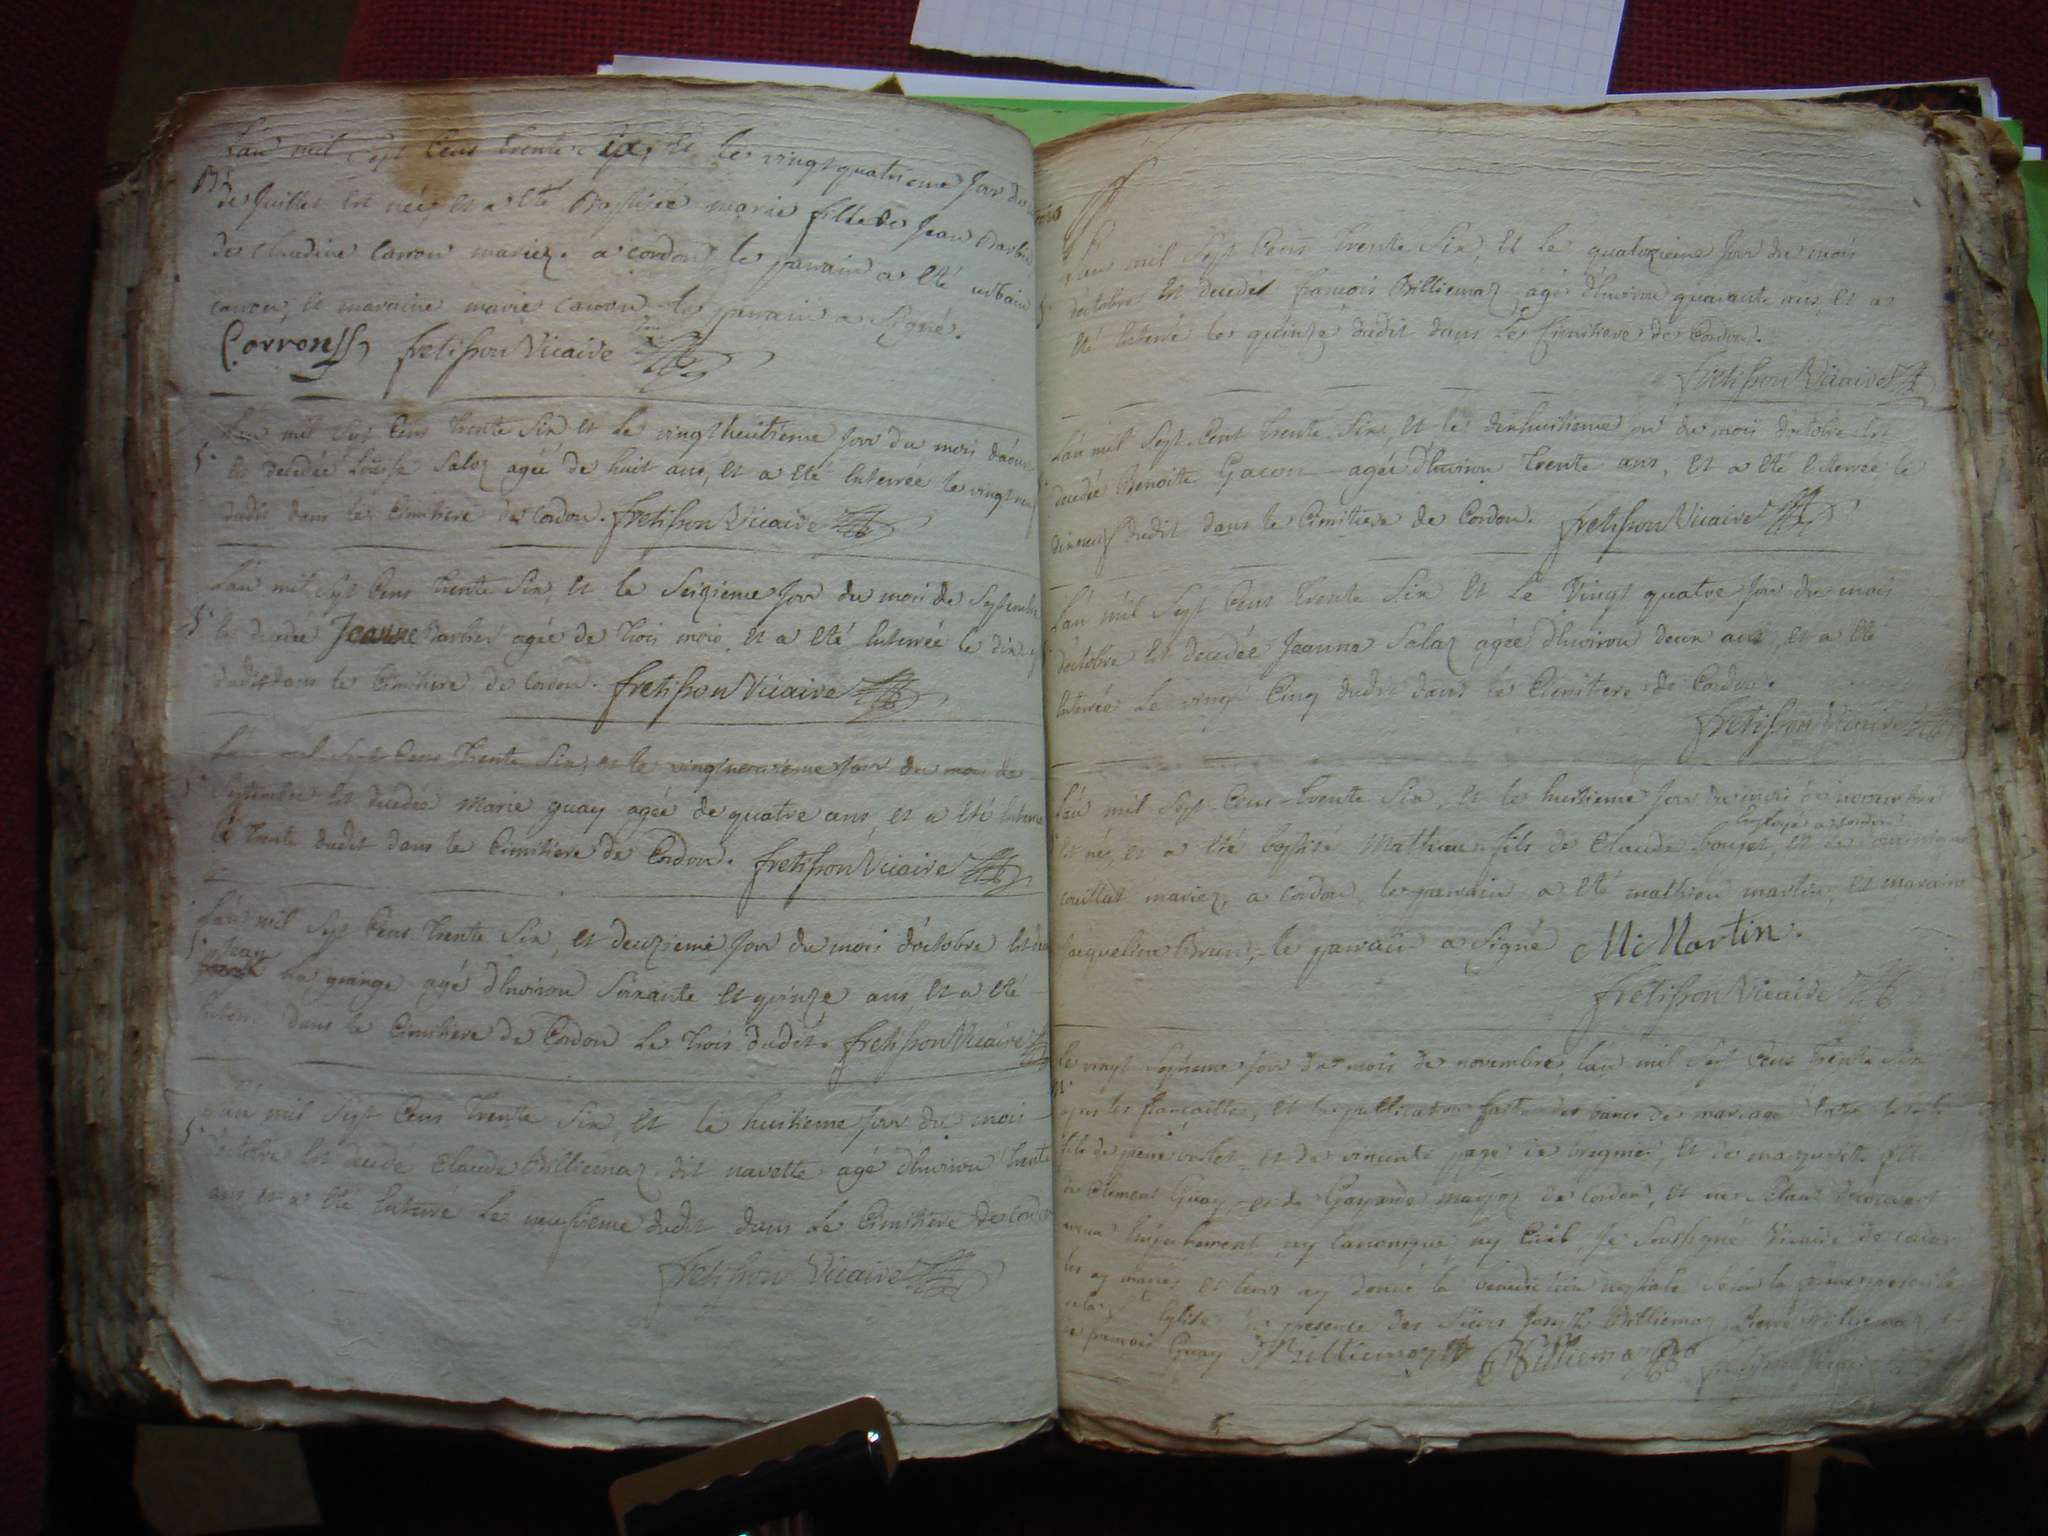 L'an mil sept Cens trente six, et le vingt quatrieme Jour du mois
Bs de Juillet est née, et a eté Baptisée marie fille de Jean Barbier
de claudine Carron mariez. a cordon, le parrain a eté urbain
carron, et maraine marie carron le parrain a signé.
Corron fretisson Vicaire
L'an mil sept Cens trente six et le vingt huitieme Jour du mois d'aoust
S. est decedée Louise Salaz agée de huit ans, et a eté Enterrée le vingt neuf
dudit dans le Cimitiere de Cordon. fretisson Vicaire
L'an mil sept Cens trente six, et le Seizieme Jour du mois de Septembre
S. est decedée Jeanne barbier agée de trois mois, et a eté Enterrée le dix sept
dudit dans le Cimitiere de Cordon. fretisson Vicaire
L'an mil sept Cens trente six, et le vingt neuvieme Jour du mois de
S. Septembre est decedée Marie guay agée de quatre ans, et a eté Enterrée
le trente dudit dans le Cimitiere de Cordon. fretisson Vicaire
L'an mil sept Cens trente six, et deuzieme Jour du mois d'octobre est
S. Jean la grange agé d'Environ Soixante et quinze ans, et a eté
Enterré dans le Cimitiere de Cordon le trois dudit. fretisson Vicaire
L'an mil sept Cens trente six, et le huitieme Jour du mois
S. d'octobre est decedé Claude Billiemaz dit navette agé d'Environ trente
ans, et a eté Enterré le neufieme dudit dans le Cimitiere de Cordon
fretisson Vicaire
L'an mil sept Cens trente six, et le quatorzieme Jour du mois
d'octobre est decedé francois Billiemaz agé d'Environ quarante ans, et a
eté Enterré le quinze dudit dans le Cimitiere de Cordon.
fretisson Vicaire
L'an mil sept Cent trente six, et le dix huitieme du mois d'octobre est
decedée Benoite Gacon agée d'Environ trente ans, et a eté Enterrée le
dix neuf dudit dans le Cimitiere de Cordon. fretisson Vicaire
L'an mil sept Cens trente six et le Vingt quatre Jour du mois
d'octobre est decedée Jeanne Salaz agée d'Environ deux ans, et a eté
Enterrée le vingt Cinq dudit dans le Cimitiere de Cordon.
fretisson Vicaire
L'an mil sept Cens trente six, et le huitieme Jour du mois de novembre
Employé a Cordon
est né, et a eté baptisé Mathieu fils de Claude et de
mariez, a cordon, le parrain a eté mathieu martin, et maraine
Jacqueline Brun, le parrain a signé M: Martin.
fretisson Vicaire
Le vingt Septieme Jour du mois de novembre, l'an mil sept Cens trente six
apres les fiançailles, et la publication faite des bancs de mariage Entre
fils de pierre et de vincente page de bregnier, et de marguerite fille
de Clement Guay, et de de cordon, et ne s'etant decouvert
aucun Empechement, ny canonique, ny Civil, Je soussigné Vicaire de Cordon
les ay mariés et leurs ay donné la benediction nuptiale selon la forme prescrite
Eglise en presence des Sieurs Joseph Billiemaz, pierre Billiemaz, et
de francois Guay J Billiemaz P Billiemaz fretisson Vicaire